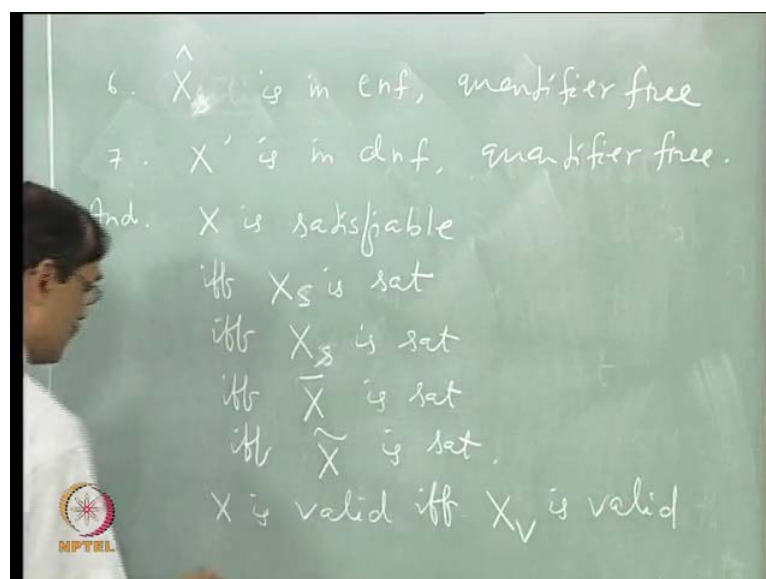 6. X̂ is in cnf, quantifier free
7. X' is in dnf, quantifier free.
And. X is satisfiable
iff X_S is sat
iff X_s is sat
iff X̄ is sat
iff X̃ is sat.
X is valid iff X_V is valid
NPTEL